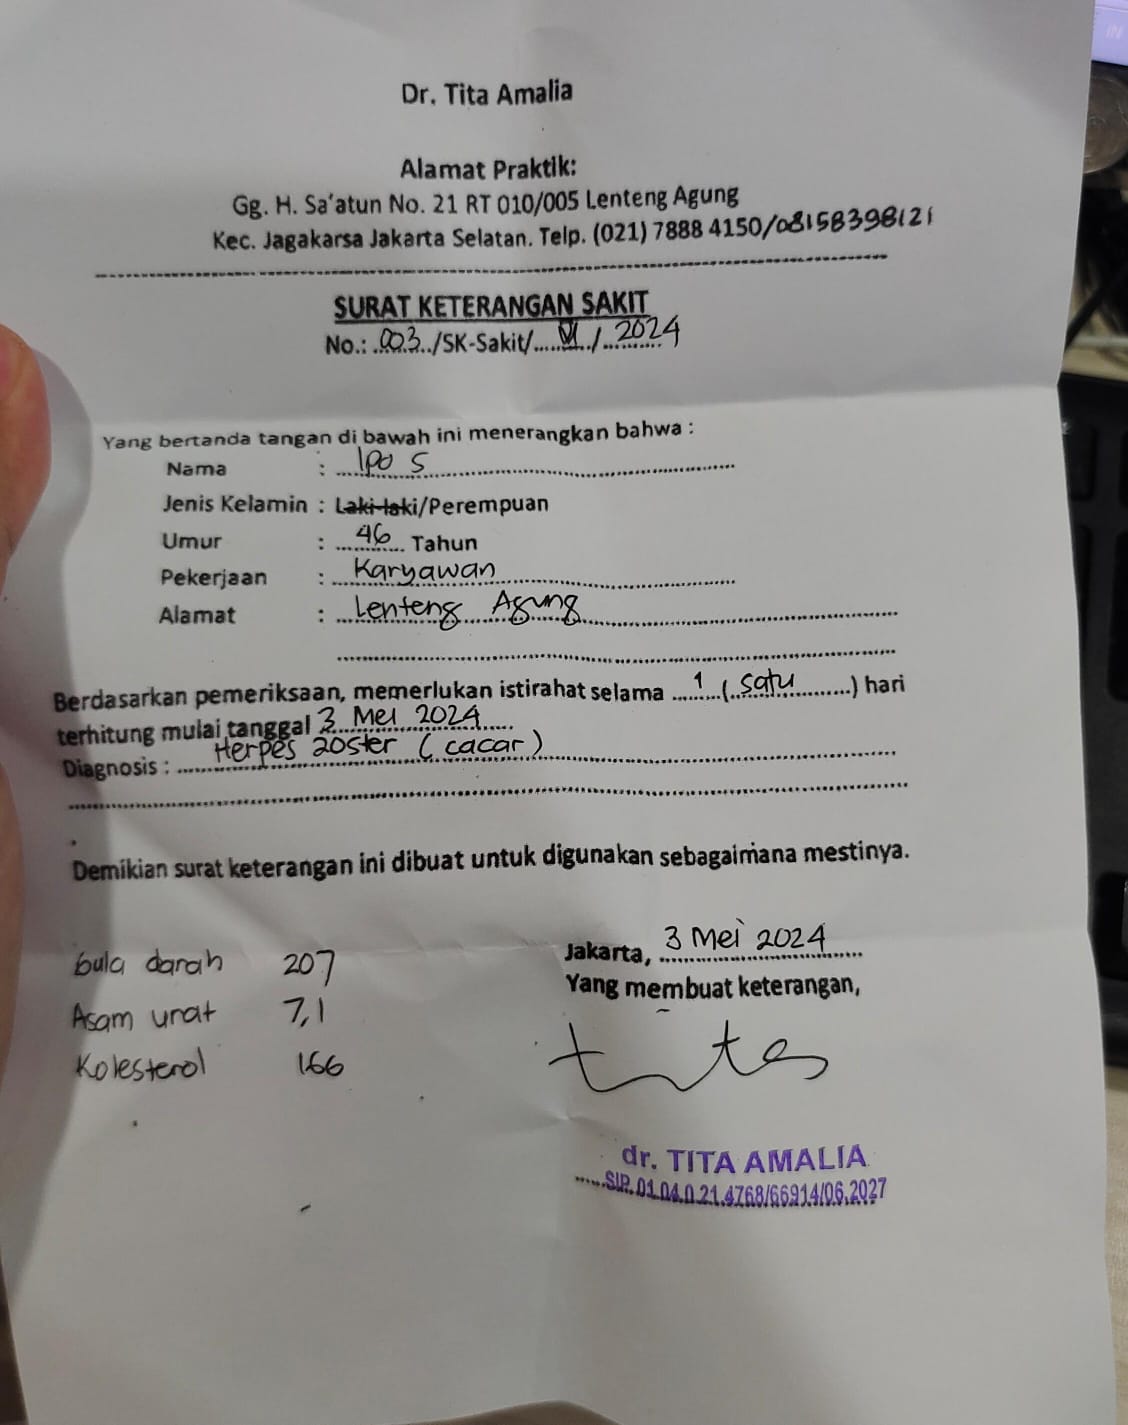 Dr. Tita Amalia
Alamat Praktik:
Gg. H. Sa'atun No. 21 RT 010/005 Lenteng Agung
Kec. Jagakarsa Jakarta Selatan. Telp. (021) 7888 4150/08158398121
SURAT KETERANGAN SAKIT
No.: 003/SK-Sakit/VI/2024
Yang bertanda tangan di bawah ini menerangkan bahwa :
Nama : Ipo S
Jenis Kelamin : Laki-laki/Perempuan
Umur : 46 Tahun
Pekerjaan : Karyawan
Alamat : Lenteng Agung
Berdasarkan pemeriksaan, memerlukan istirahat selama 1 (satu) hari
terhitung mulai tanggal 3 Mei 2024
Diagnosis : Herpes zoster (cacar)
Demikian surat keterangan ini dibuat untuk digunakan sebagaimana mestinya.
Jakarta, 3 Mei 2024
Yang membuat keterangan,
Gula darah 207
Asam urat 7,1
Kolesterol 166
tita
dr. TITA AMALIA
SIP. 01.04.0.21.4768/66914/06.2027